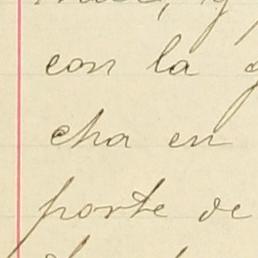 con la
cha en
porte de